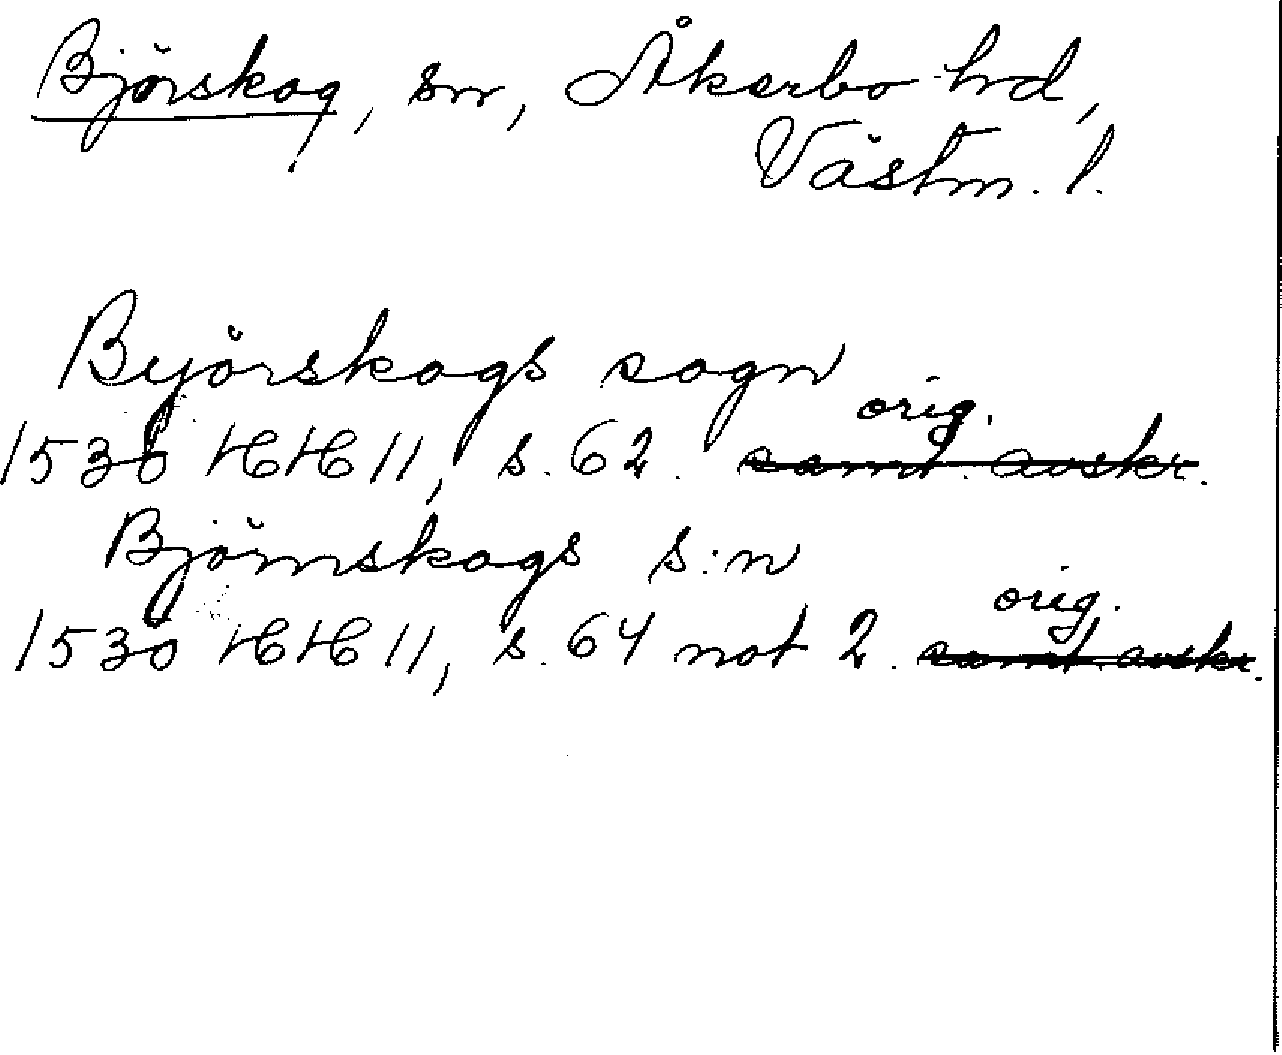 Björskog, sn, Åkerbo hd,
Västm. l.
Byörskogs sogn
orig.
1530 HH 11, s. 62. samt. avskr.
Björnskogs s:n
orig.
1530 HH 11, s. 64 not 2. samt. avskr.